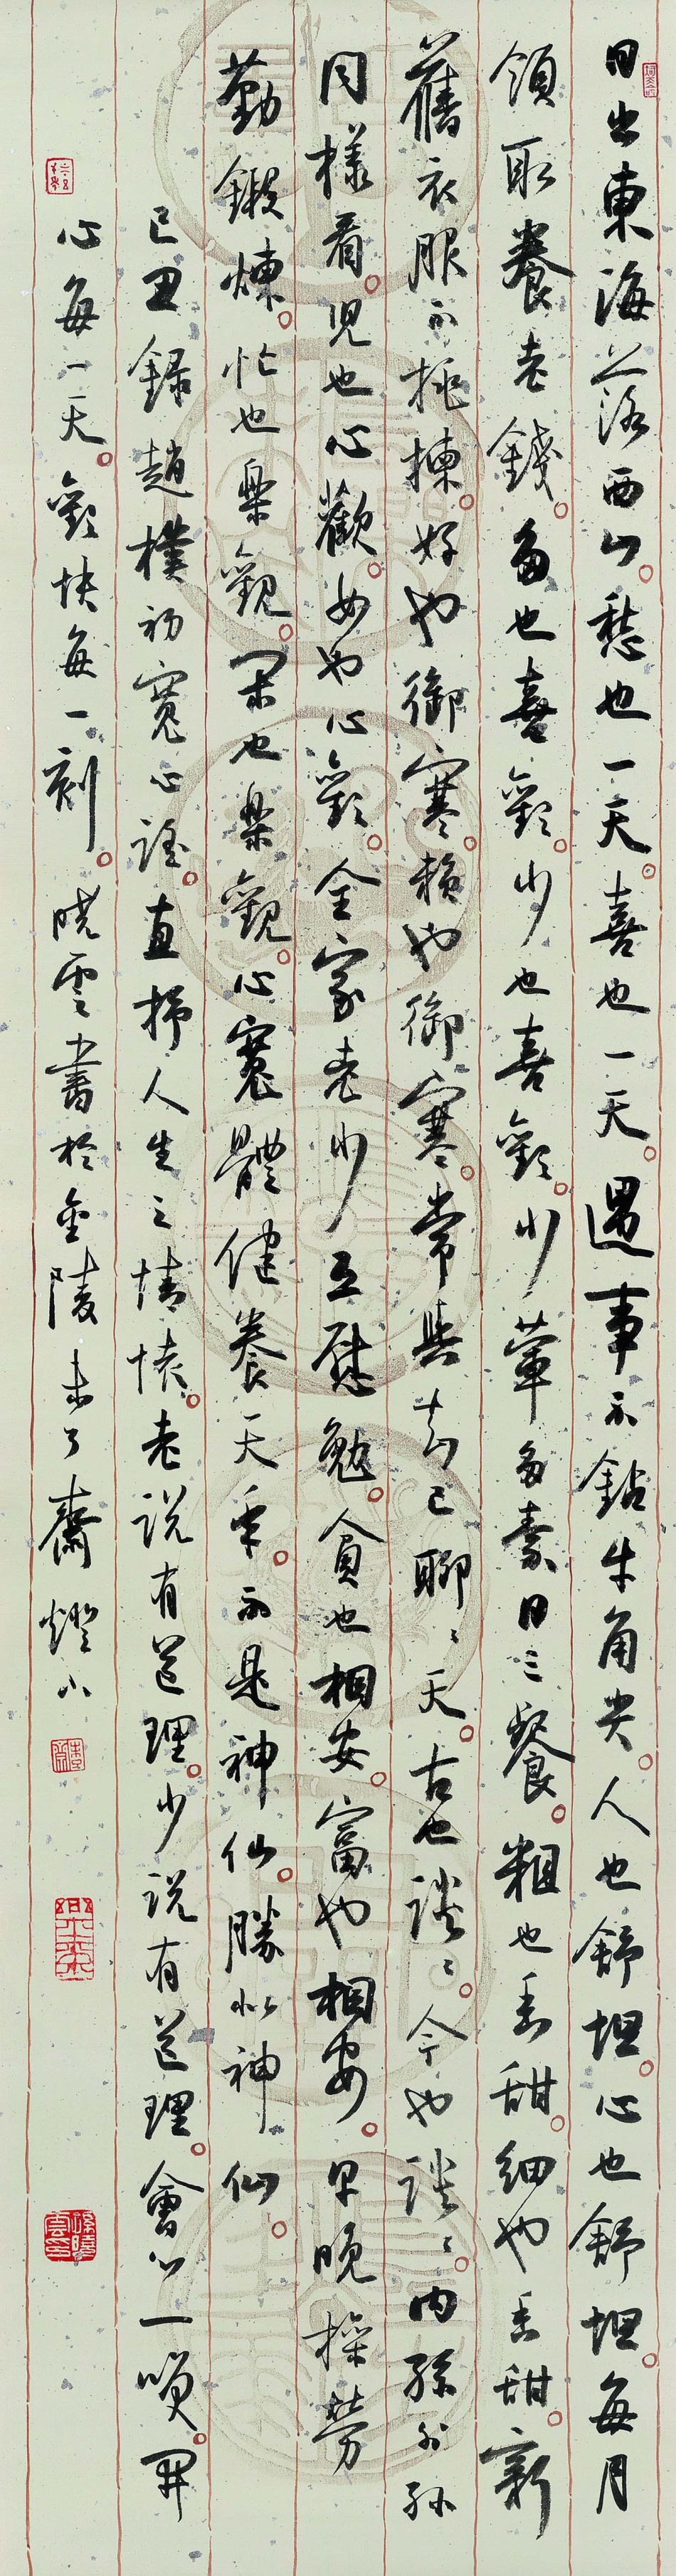 日出東海落西山。愁也一天。喜也一天。遇事不鉆牛角尖。人也舒坦。心也舒坦。每月
領取養老錢。多也喜歡。少也喜歡。少葷多素日三餐。粗也香甜。細也香甜。新
舊衣服不挑揀。好也御寒。賴也御寒。常與知己聊〻天。古也談〻。今也談〻。內孫外孫
同樣看。兒也心歡。女也心歡。全家老少互慰勉。貧也相安。富也相安。早晚操勞
勤鍛煉。忙也樂觀。閑也樂觀。心寬體健養天年。不是神仙。勝似神仙。
己丑錄趙樸初寬心謠。直抒人生之情懷。老說有道理。少說有道理。會心一笑。開
心每一天。歡快每一刻。曉雲書於金陵未了齋燈下